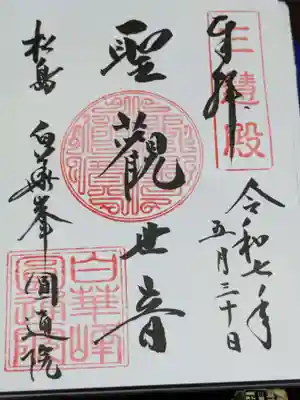 奉拝
三慧殿
令和七年
五月三十日
聖観世音
松島 白華峯 圓通院
白華峰